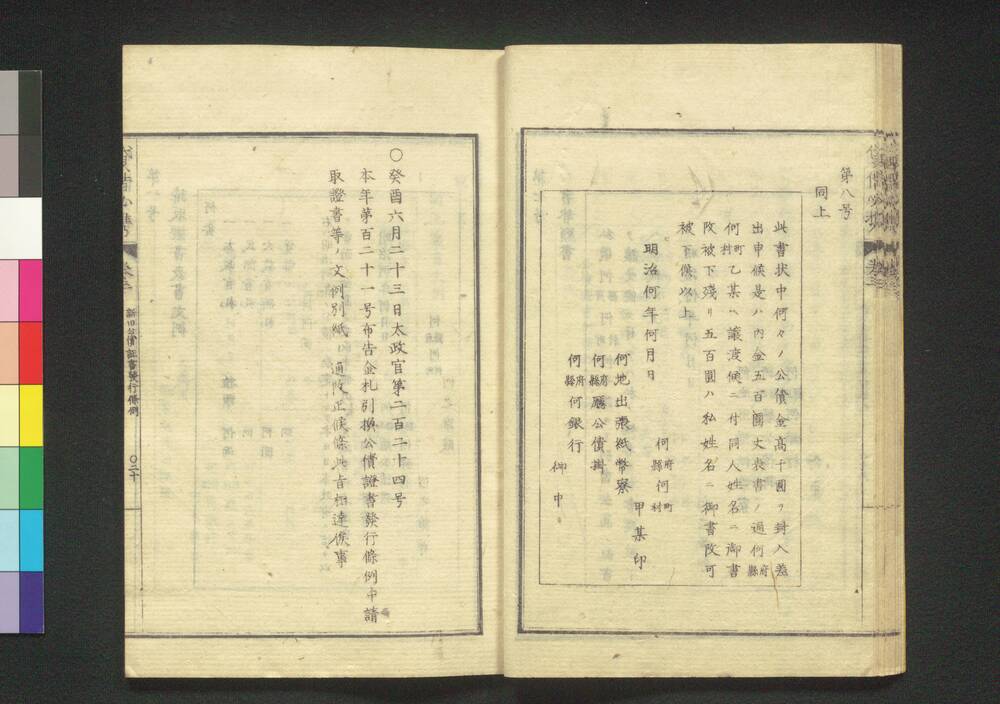 第八号
同上
此書状中何々ノ公債金高千圓ヲ封入差
出申候是ハ内金五百圓丈表書ノ通何府縣
何町村乙某ヘ譲渡候ニ付同人姓名ニ御書
改被下残リ五百圓ハ私姓名ニ御書改可
被下候以上
明治何年何月日
何府縣何町村
甲某印
何地出張紙幣寮
何府縣廳公債掛
何府縣何銀行
御中
○癸酉六月二十三日太政官第二百二十四号
本年第百二十一号布告金札引換公債證書發行條例中請
取證書等ノ文例別紙ノ通改正候條此旨相達候事
新旧公債証書發行條例
○二十